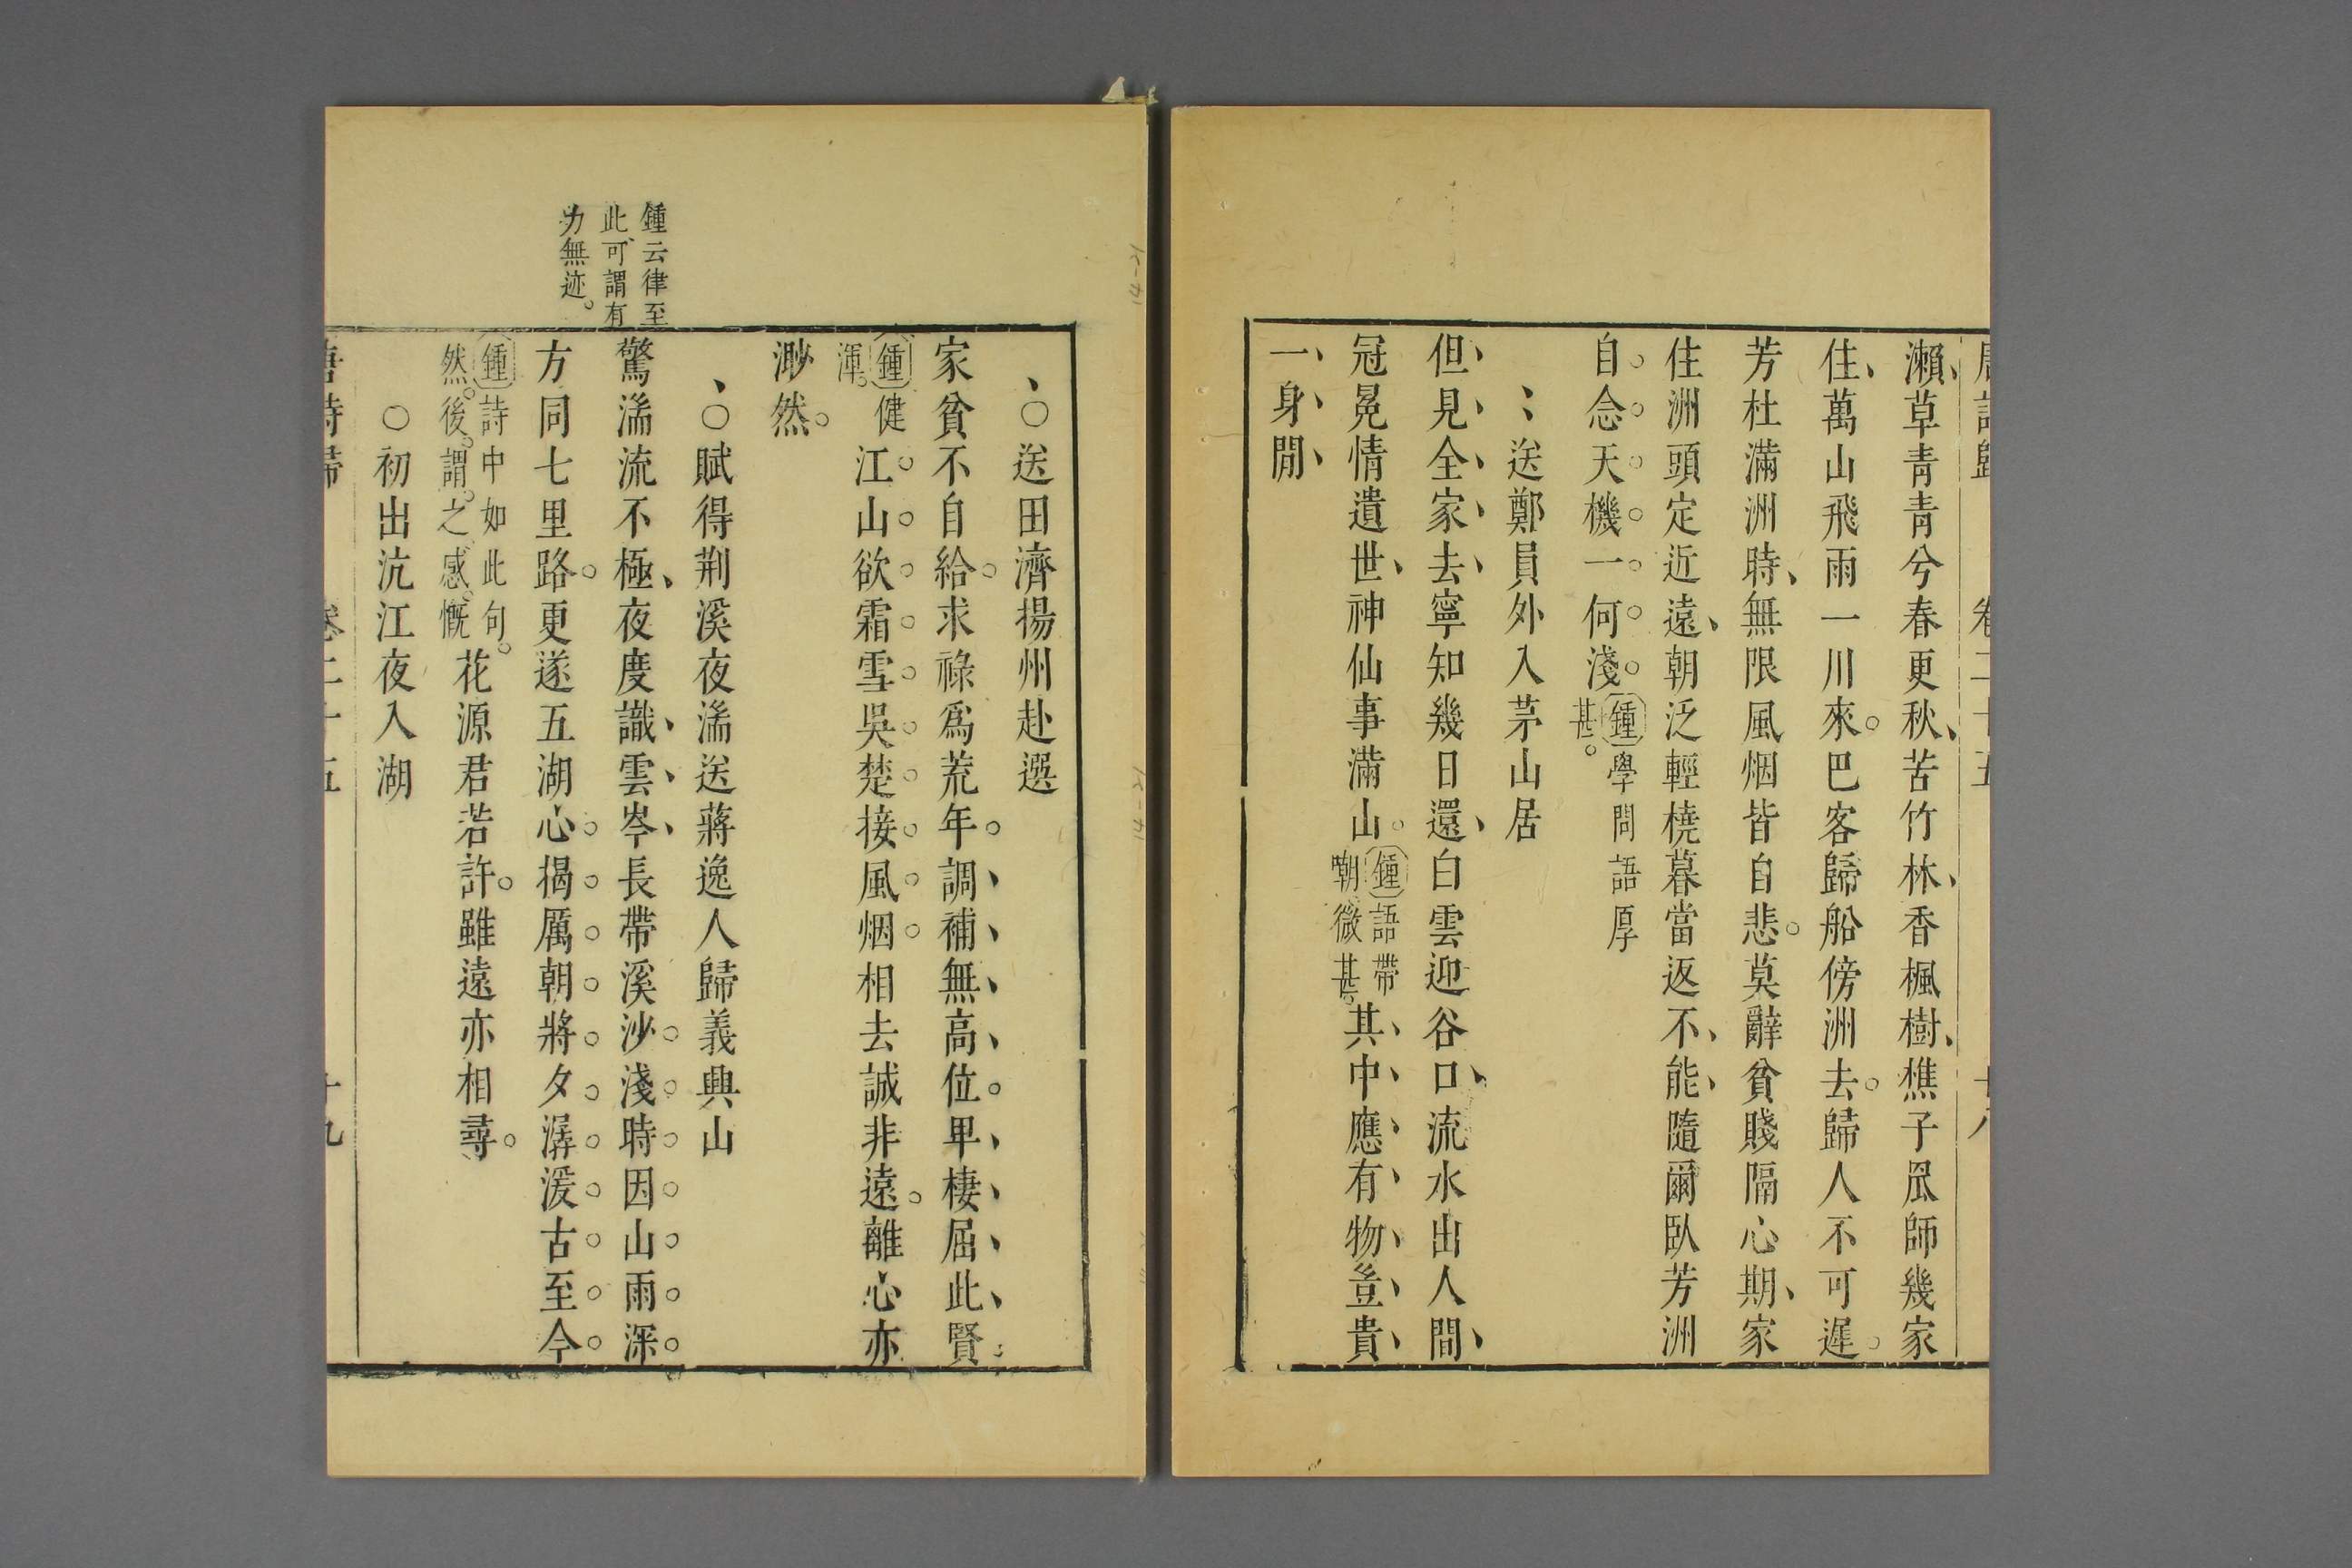 唐詩歸 卷二十五 十八
瀨草青青兮春更秋苦竹林香楓樹樵子罛師幾家
住萬山飛雨一川來巴客歸船傍洲去歸人不可遲
芳杜滿洲時無限風烟皆自悲莫辭貧賤隔心期家
住洲頭定近遠朝泛輕橈暮當返不能隨爾臥芳洲
自念天機一何淺鍾學問語厚甚
送鄭員外入茅山居
但見全家去寧知幾日還白雲迎谷口流水出人間
冠冕情遺世神仙事滿山鍾語帶嘲微甚其中應有物豈貴
一身閒
送田濟揚州赴選
家貧不自給求祿爲荒年調補無高位卑棲屈此賢
鍾健渾江山欲霜雪吳楚接風烟相去誠非遠離心亦
渺然
賦得荆溪夜湍送蔣逸人歸義興山
鍾云律至
此可謂有
力無迹
驚湍流不極夜度識雲岑長帶溪沙淺時因山雨深
方同七里路更遂五湖心揭厲朝將夕潺湲古至今
鍾詩中如此句然後謂之感慨花源君若許雖遠亦相尋
初出沆江夜入湖
唐詩歸 卷二十五 十九